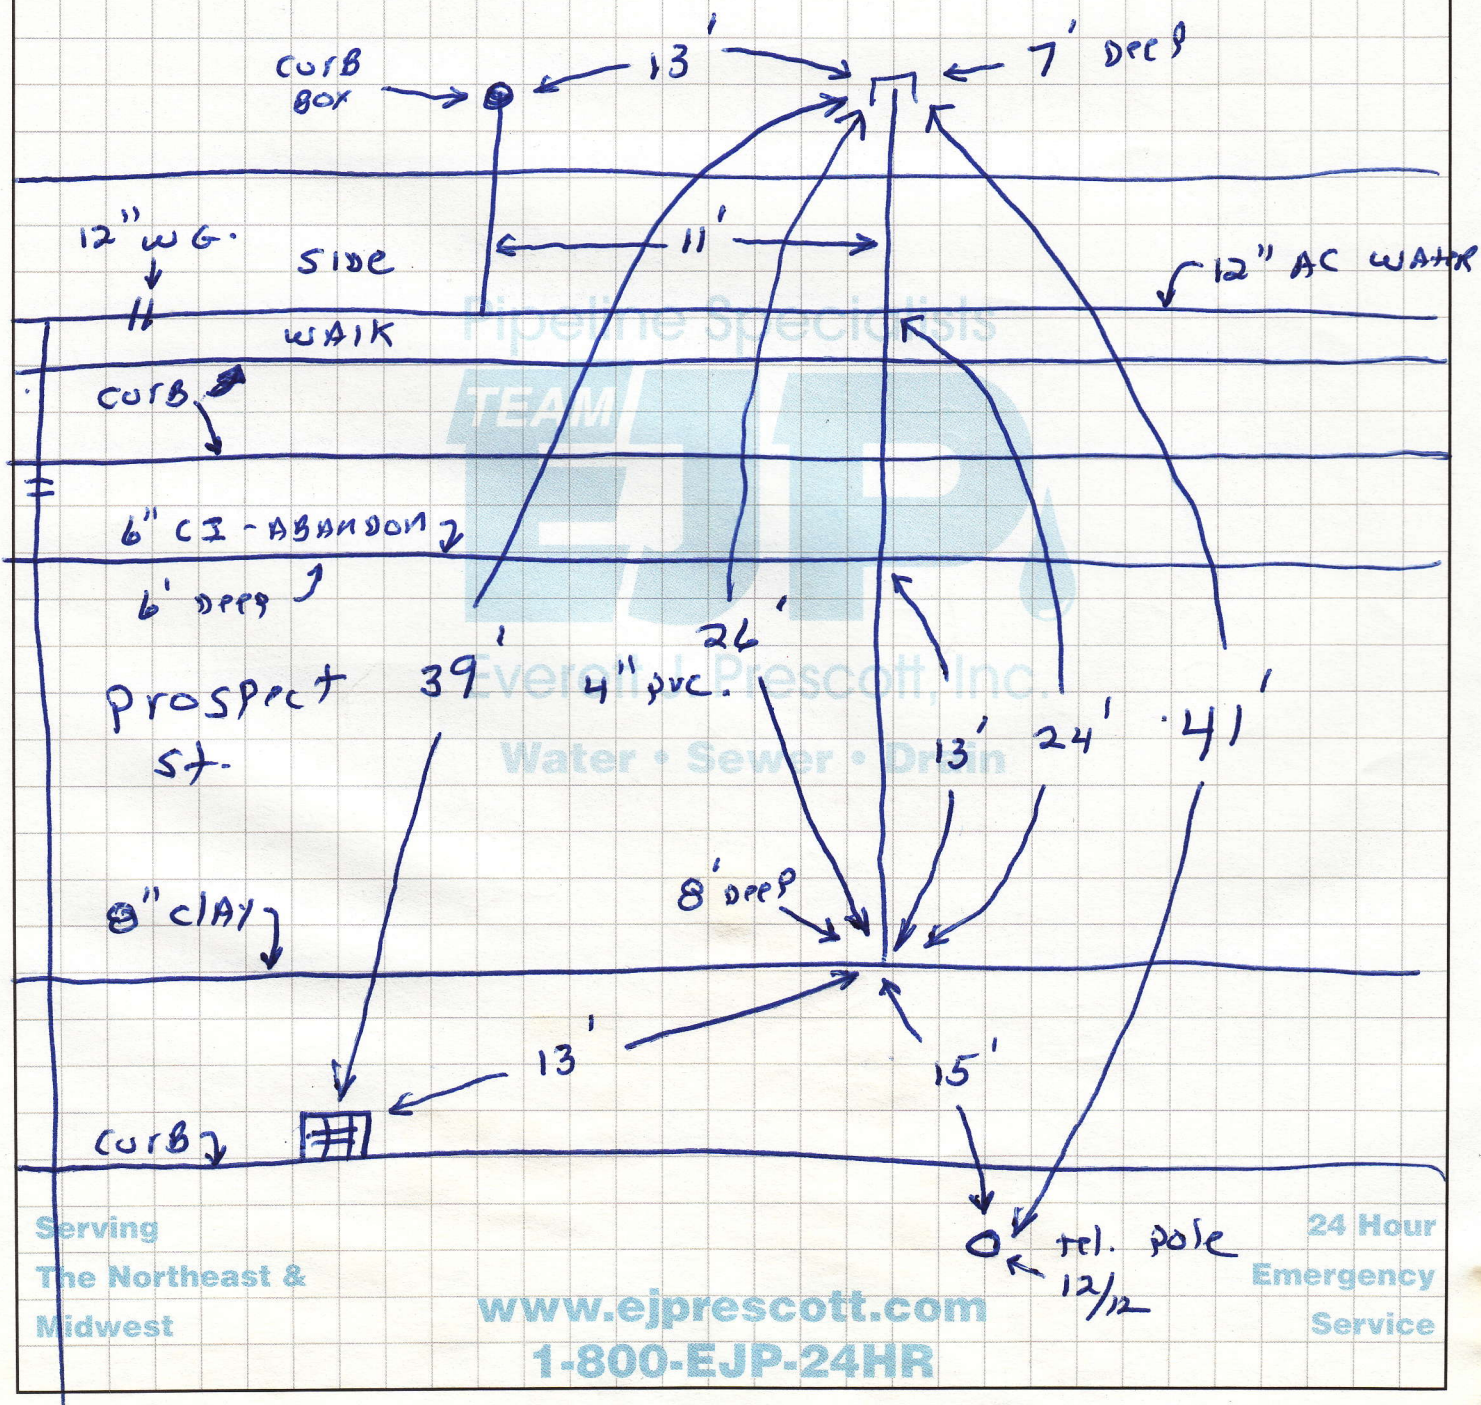 curB
Box
13'
7' Deep
12" WG.
SIDe
11'
12" AC WATER
Pipeline Specialists
WAlK
curB
TEAM
EJP
6" CI - ABANDON
6' Deep
Prospect
St.
39'
26'
4" pvc.
Everett J. Prescott, Inc.
13'
24'
41'
Water • Sewer • Drain
8" clAY
8' Deep
13'
15'
curB
tel. pole
12/12
Serving
The Northeast &
Midwest
www.ejprescott.com
1-800-EJP-24HR
24 Hour
Emergency
Service